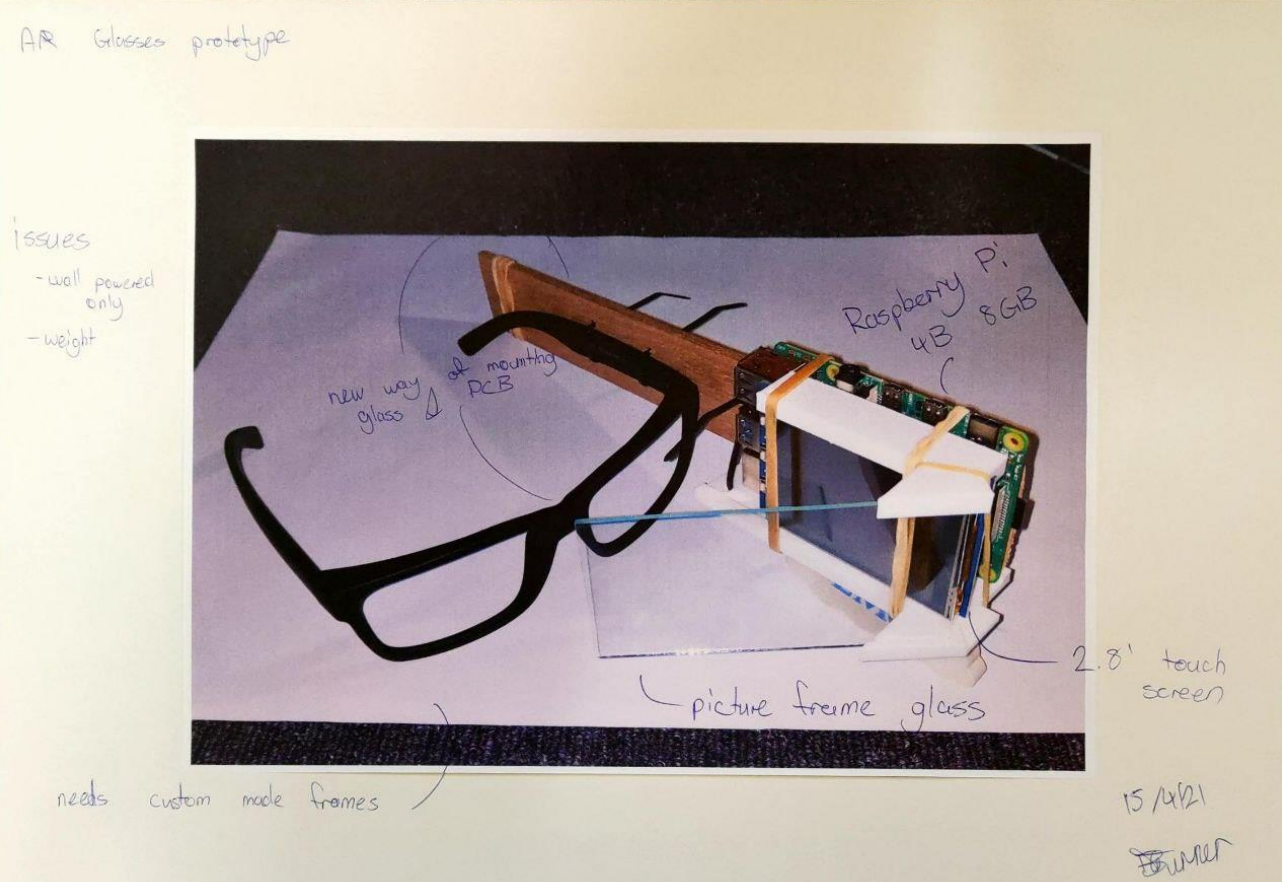 AR Glasses prototype
issues
- wall powered
only
- weight
new way of mounting
glass & PCB
Raspberry Pi
4B 8GB
2.8' touch
screen
picture frame glass
needs custom made frames
15/4/21